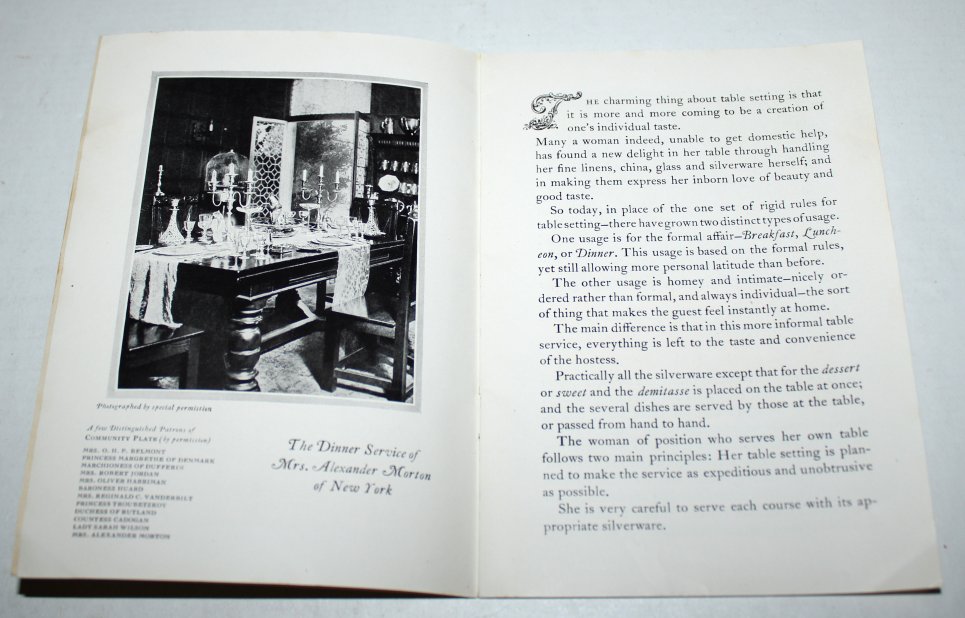 Photographed by special permission
A few Distinguished Patrons of
COMMUNITY PLATE (by permission)
MRS. O. H. P. BELMONT
PRINCESS MARGRETHE OF DENMARK
MARCHIONESS OF DUFFERIN
MRS. ROBERT JORDAN
MRS. OLIVER HARRIMAN
BARONESS HUARD
MRS. REGINALD C. VANDERBILT
PRINCESS TROUBETZKOY
DUCHESS OF RUTLAND
COUNTESS CADOGAN
LADY SARAH WILSON
MRS. ALEXANDER MORTON
The Dinner Service of
Mrs. Alexander Morton
of New York
THE charming thing about table setting is that
it is more and more coming to be a creation of
one's individual taste.
Many a woman indeed, unable to get domestic help,
has found a new delight in her table through handling
her fine linens, china, glass and silverware herself; and
in making them express her inborn love of beauty and
good taste.
So today, in place of the one set of rigid rules for
table setting—there have grown two distinct types of usage.
One usage is for the formal affair—Breakfast, Lunch-
eon, or Dinner. This usage is based on the formal rules,
yet still allowing more personal latitude than before.
The other usage is homey and intimate—nicely or-
dered rather than formal, and always individual—the sort
of thing that makes the guest feel instantly at home.
The main difference is that in this more informal table
service, everything is left to the taste and convenience
of the hostess.
Practically all the silverware except that for the dessert
or sweet and the demitasse is placed on the table at once;
and the several dishes are served by those at the table,
or passed from hand to hand.
The woman of position who serves her own table
follows two main principles: Her table setting is plan-
ned to make the service as expeditious and unobtrusive
as possible.
She is very careful to serve each course with its ap-
propriate silverware.